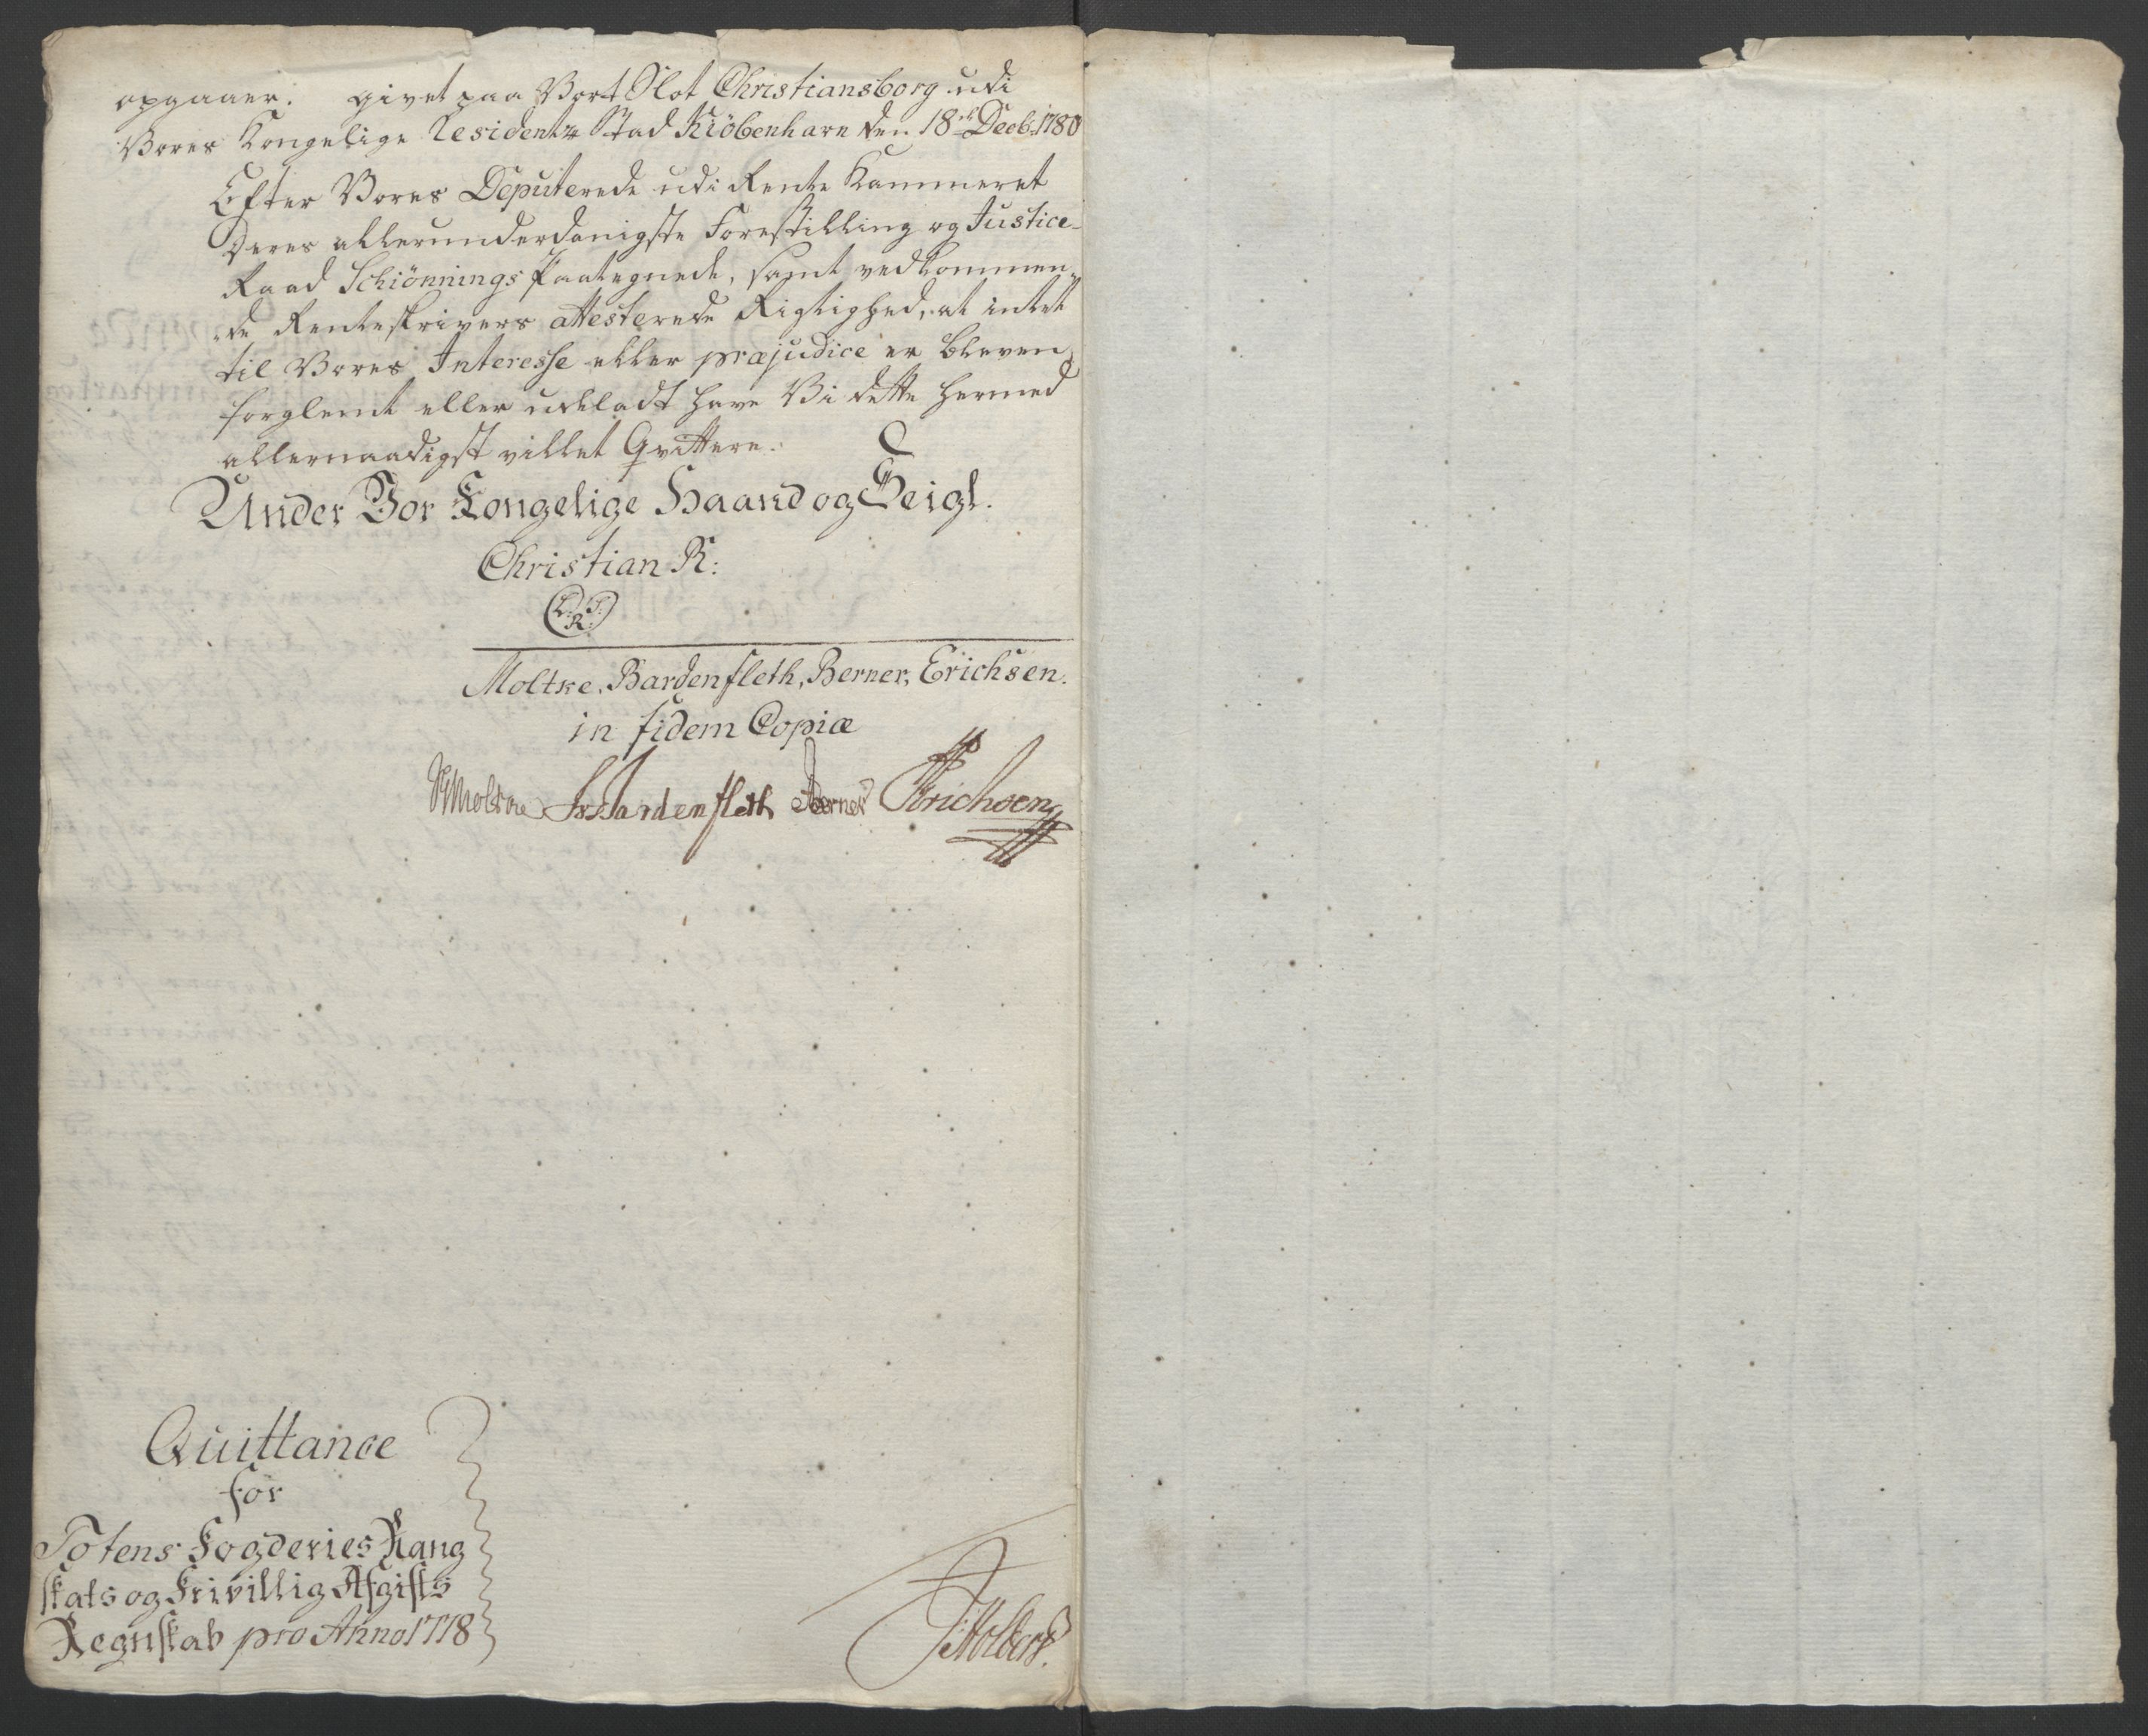 opgaaer. givet paa Vort Slot Christiansborg udi
Vores Kongelige Residentz Stad Kiöbenhavn den 18de Decbr: 1780
Efter Vores Deputerede udi Rente Kammeret
Deres allerunderdanigste Forestilling og Justice-
Raad Schiönnings Paategnede, samt vedkommen-
de Renteskrivers attesterede Rigtighed, at intet
til Vores Interesse eller præjudice er bleven
forglemt eller udeladt have Vi dette hermed
allernaadigst villet Qvittere.
Under Vor Kongelige Haand og Seigl.
Christian R:
L. S.
R.
Moltke, Bardenfleth, Berner, Erichsen.
in fidem Copiæ
Moltke Bardenfleth Berner Erichsen
Quittance
for
Totens Fogderies Rang
skats og Frivillig Afgifts
Regnskab pro Anno 1778